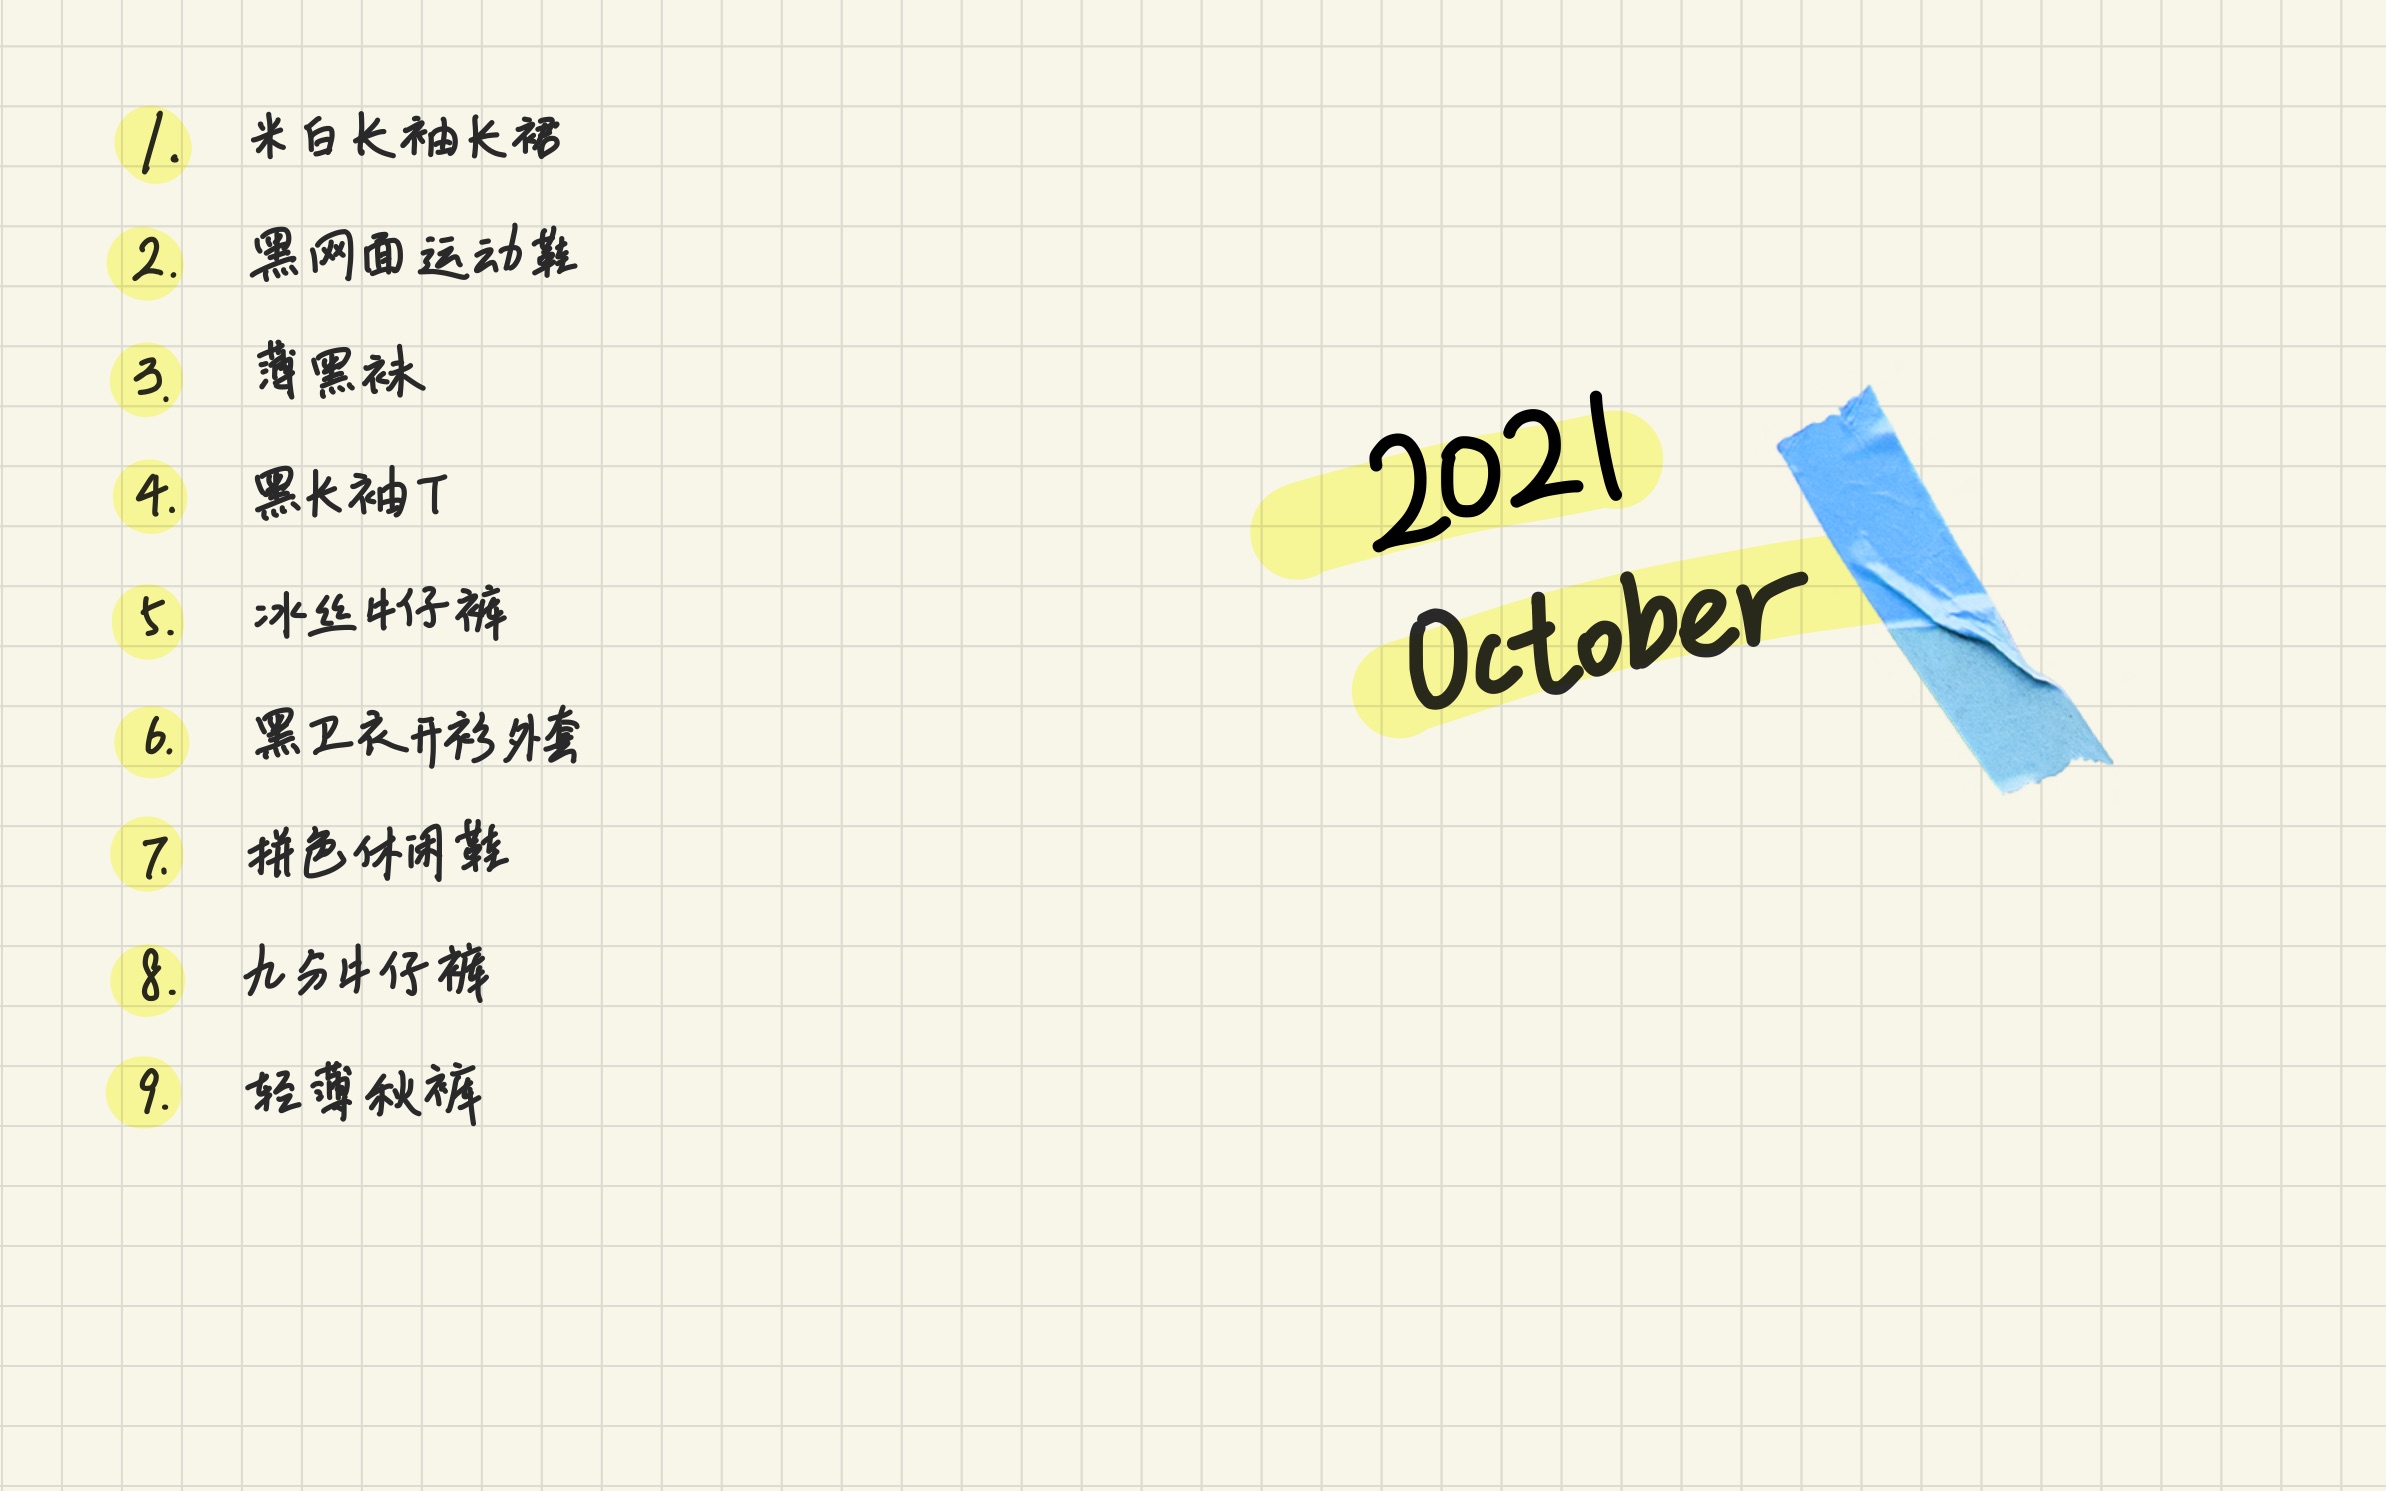 1. 米白长袖长裙
2. 黑网面运动鞋
3. 薄黑袜
4. 黑长袖T
5. 冰丝牛仔裤
6. 黑卫衣开衫外套
7. 拼色休闲鞋
8. 九分牛仔裤
9. 轻薄秋裤
2021
October